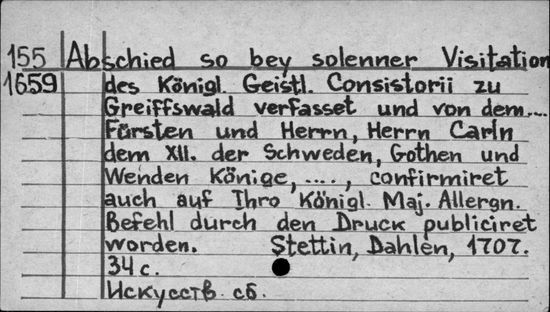 155 Abschied so bey solenner Visitation
1659 des Königl. Geistl. Consistorii zu
Greiffswald verfasset und von dem....
Fürsten und Herrn, Herrn Carln
dem XII. der Schweden, Gothen und
Wenden Könige, ...., confirmiret
auch auf Ihro Königl. Maj. Allergn.
Befehl durch den Druck publiciret
worden. Stettin, Dahlen, 1707.
34 с.
Искусств. сб.